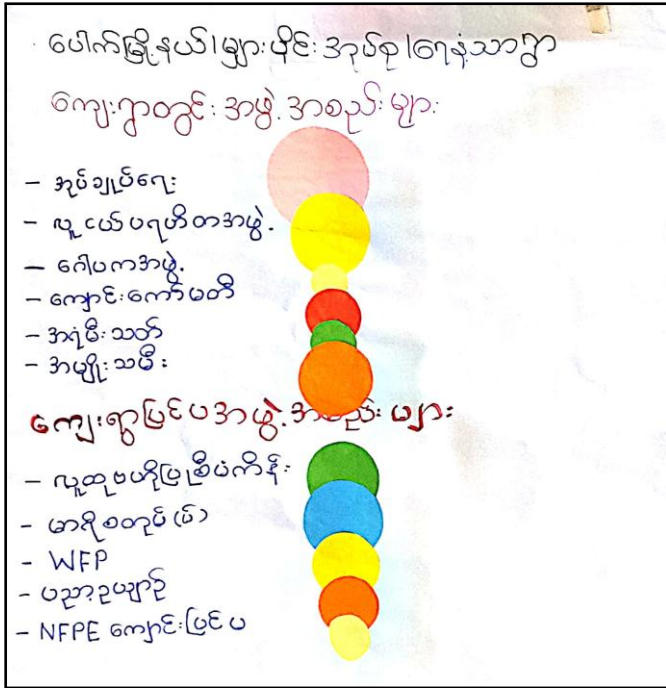 ပေါက်မြို့နယ်၊မျှားပိုင်းအုပ်စု၊ရေနံ့သာရွာ
ကျေးရွာတွင်းအဖွဲ့အစည်းများ
- အုပ်ချုပ်ရေး
- လူငယ်ပရဟိတအဖွဲ့
- ဂေါပကအဖွဲ့
- ကျောင်းကော်မတီ
- အရံမီးသတ်
- အမျိုးသမီး
ကျေးရွာပြင်ပအဖွဲ့အစည်းများ
- လူထုဗဟိုပြုစီမံကိန်း
- မာရီစတုပ်(ပ်)
- WFP
- ပညာ့ဥယျာဉ်
- NFPE ကျောင်းပြင်ပ